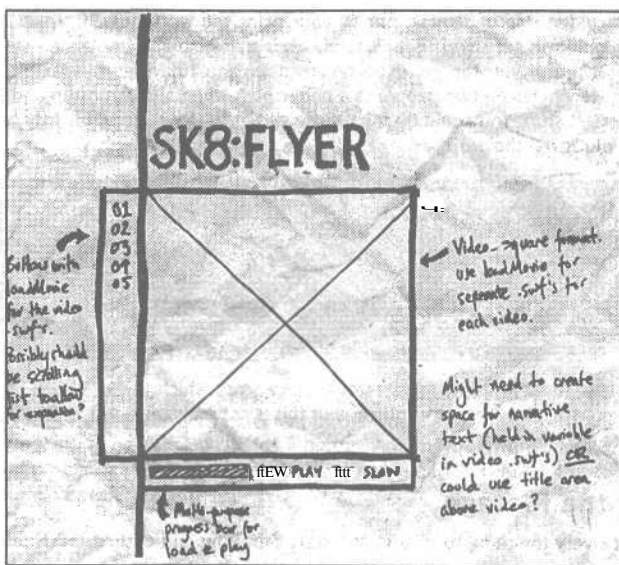 SK8:FLYER
01
02
03
04
05
Buttons with
loadMovie
for the video
.swf's.
Possibly should
be scrolling
list to allow
for expansion?
Video - square format.
use loadMovie for
separate .swf's for
each video.
Might need to create
space for narrative
text (held in variable
in video .swf's) OR
could use title area
above video?
ftEW PLAY fttt SLOW
Multi-purpose
progress bar for
load & play